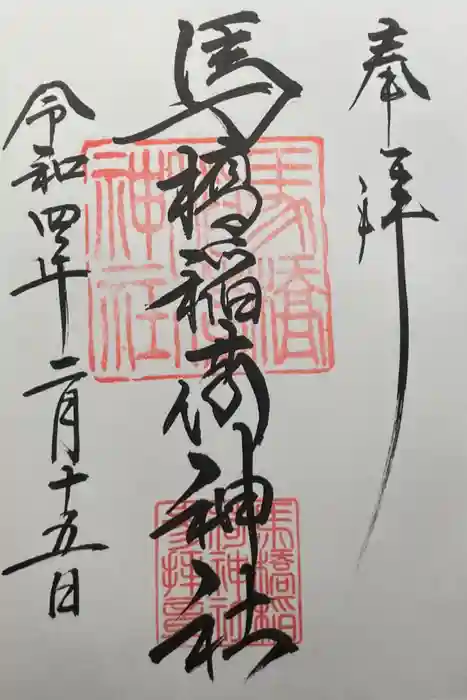 奉拝
馬橋稲荷神社
令和四年二月十五日
馬橋
稲荷
神社
馬橋稲
荷神社